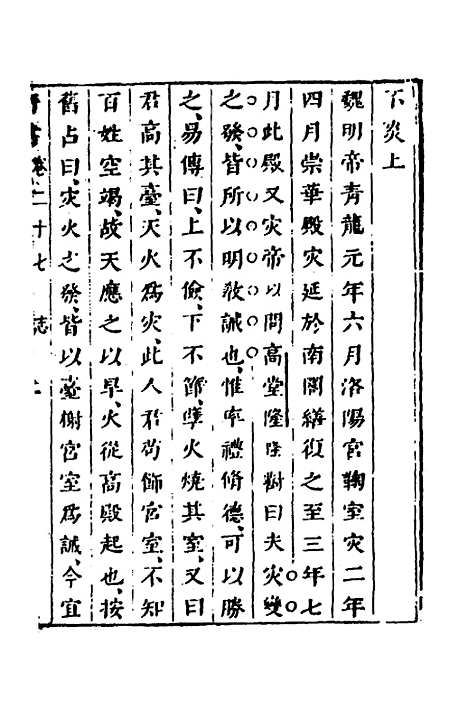 不炎上
魏明帝青龍元年六月洛陽宮鞠室灾二年
四月崇華殿灾延於南閣繕復之至三年七
月此殿又灾帝以問高堂隆隆對曰夫灾變
之發皆所以明敎誡也惟率禮脩德、可以勝
之、易傳曰、上不儉、下不節、孽火燒其室、又曰
君高其臺、天火爲灾、此人君苟飾宮室、不知
百姓空竭、故天應之以旱、火從高殿起也、按
舊占曰、灾火之發、皆以臺榭宮室爲誡、今宜
晉書卷二十七 志